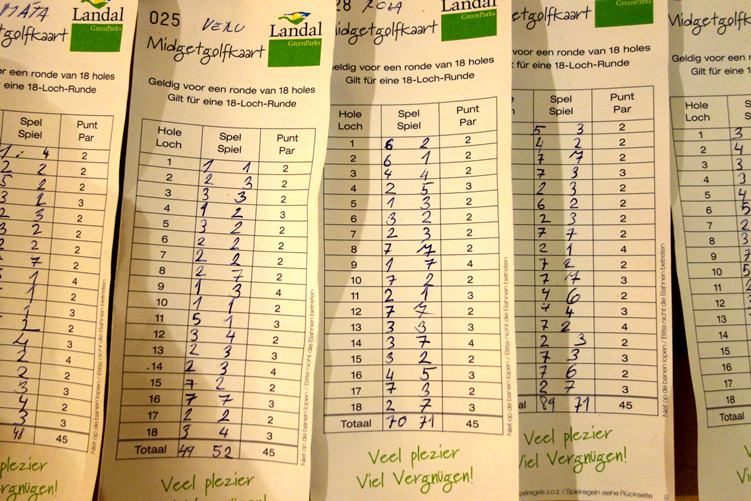 MATA
Landal
GreenParks
tgolfkaart
or een ronde van 18 holes
für eine 18-Loch-Runde
Spel Punt
Spiel Par
4 2
2 2 2
5 2 2
3 2 3
2 3 2
3 2 2
2 2 2
7 2
1 4
2
3
2
4
2
3 3
3
45
plezier
025 VERU
Landal
GreenParks
Midgetgolfkaart
Geldig voor een ronde van 18 holes
Gilt für eine 18-Loch-Runde
Hole Spel Punt
Loch Spiel Par
1 1 1 2
2 2 3 2
3 3 3 2
4 9 2 3
5 3 2 2
6 2 2 2
7 2 2 2
8 2 7 2
9 1 3 4
10 1 1 2
11 5 1 3
12 3 4 2
13 2 3 3
14 2 3 4
15 7 2 2
16 7 7 3
17 2 2 2
18 3 4 3
Totaal 49 52 45
Niet op de banen lopen / Bitte nicht die Bahnen betreten
Veel plezier
28
Landal
GreenParks
idgetgolfkaart
eldig voor een ronde van 18 holes
Gilt für eine 18-Loch-Runde
Hole Spel Punt
Loch Spiel Par
1 6 2 2
2 6 1 2
3 4 4 2
4 2 5 3
5 1 3 2
6 3 2 2
7 2 3 2
8 7 7 2
9 1 7 4
10 7 2 2
11 2 1 3
12 7 7 2
13 3 3 3
14 3 7 4
15 3 2 2
16 4 5 3
17 7 3 2
18 2 7 3
Totaal 70 71 45
Niet op de banen lopen / Bitte nicht die Bahnen betreten
Veel plezier
Viel Vergnügen!
GreenParks
etgolfkaart
voor een ronde van 18 holes
t für eine 18-Loch-Runde
Spel Punt
Spiel Par
5 3 2
4 2 2
7 7 2
7 3 3
2 3 2
6 2 2
2 3 2
7 7 2
2 1 4
7 2 2
7 7 3
4 6 2
4 4 3
7 2 4
2 3 2
7 3 3
7 6 2
2 7 3
al 89 71 45
Niet op de banen lopen / Bitte nicht die Bahnen betreten
Veel plezier
Viel Vergnügen!
pelregels z.o.z. / Spielregeln siehe Rückseite
Midgetgolf
Geldig voor een ron
Gilt für eine 18
Hole
Loch
1 3
2 4
3 3
4 3
5 4
6 5
7
8
9 7
10 5
11 2
12
13
14
15
16
17
18
Totaal